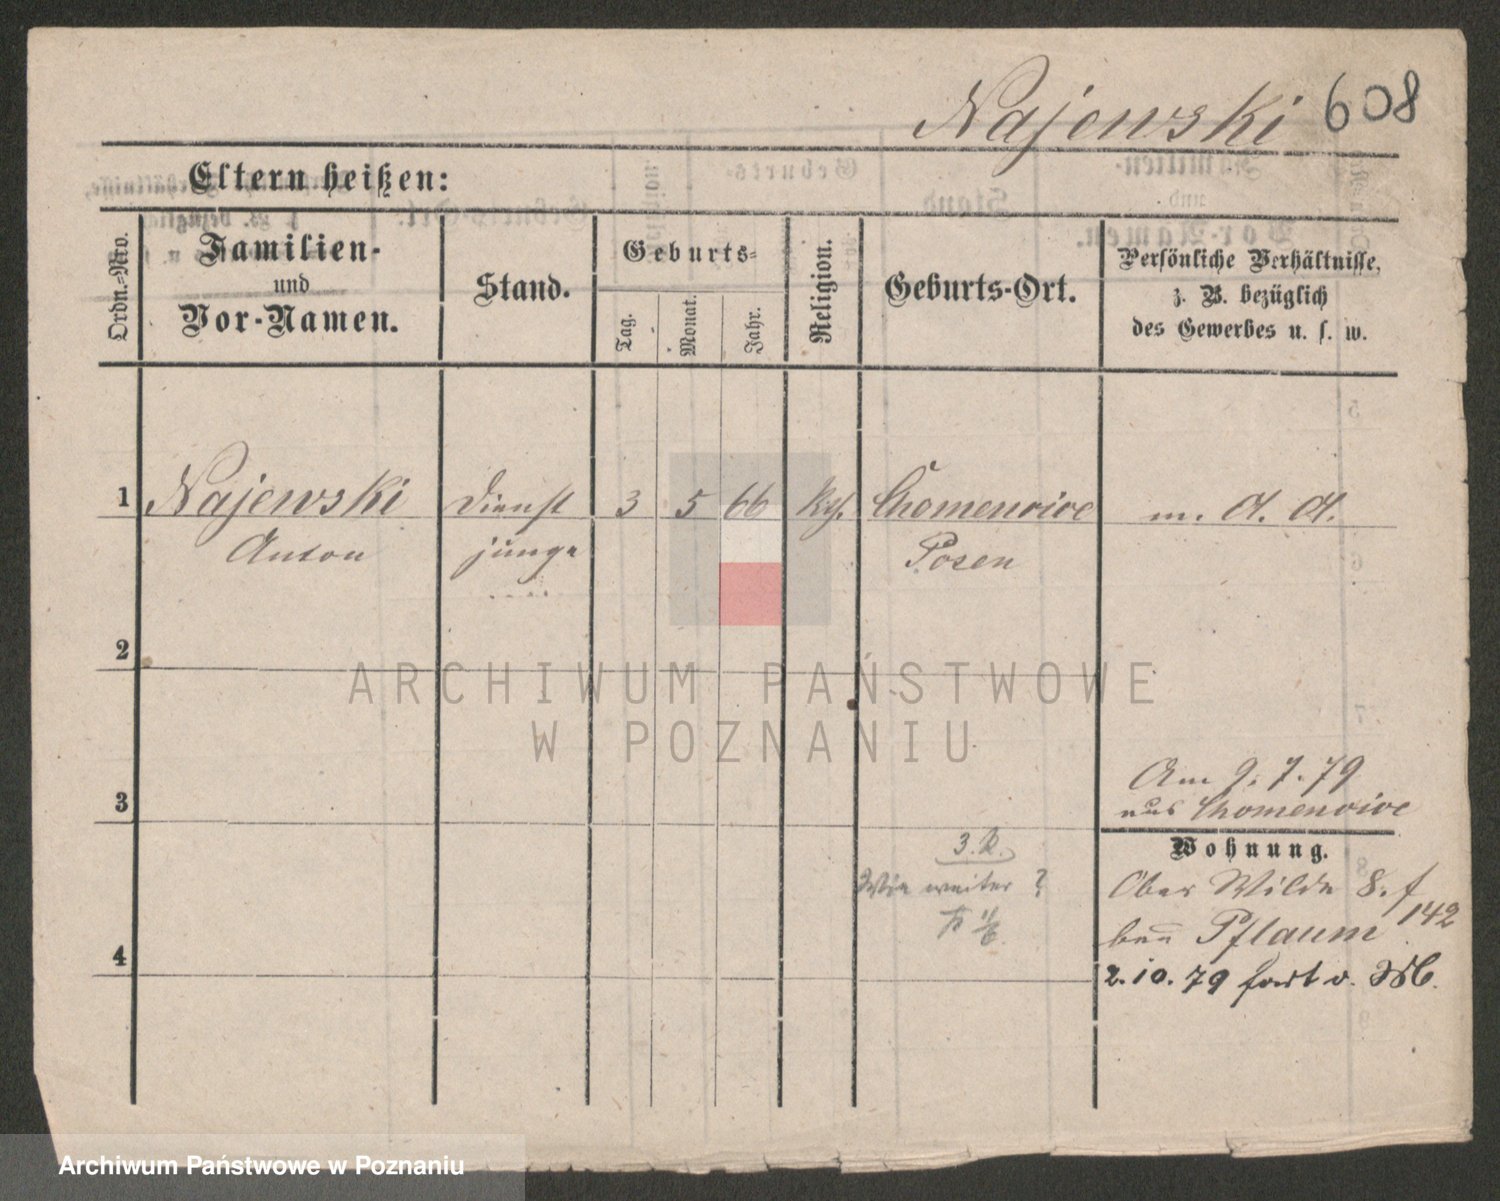 Najewski 608
Eltern heißen:
Ordn.-Nro.
Familien-
und
Vor-Namen.
Stand.
Geburts-
Tag.
Monat.
Jahr.
Religion.
Geburts-Ort.
Persönliche Verhältnisse,
z. B. bezüglich
des Gewerbes u. s. w.
1 Najewski Dienst 3 5 66 kth. Chomencice m. d. A.
Anton junge Posen
2
ARCHIWUM PAŃSTWOWE
W POZNANIU
Am 9. 7. 79
3 aus Chomencice
Wohnung.
3. R.
Wie weiter ?
Ober Wilda 8. f
142
bei Pflaum
4
2.10.79 fort v.
Archiwum Państwowe w Poznaniu